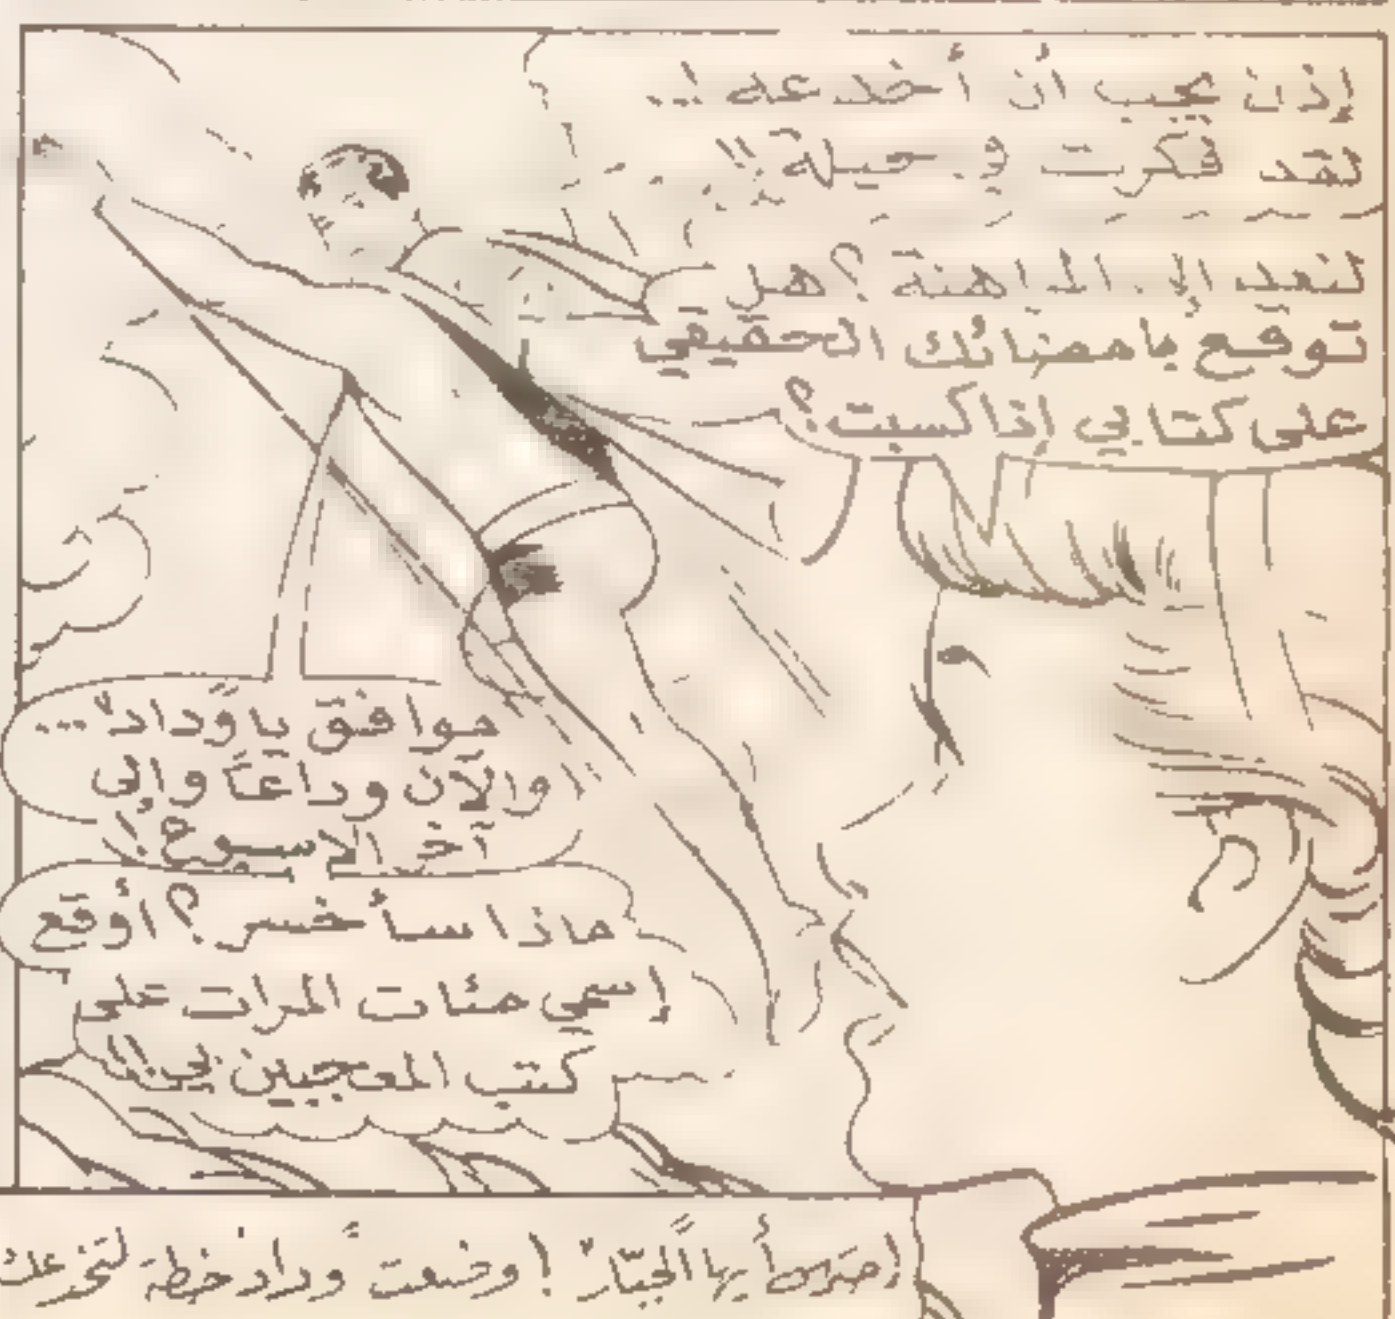 إذن يجب أن أخدعه !..
لقد فكرت في حيلة !!
لنعد إلى المراهنة ؟ هل
توقع بإمضائك الحقيقي
على كتابي إذا كسبت ؟
موافق يا "وداد" ...
والآن وداعاً وإلى
آخر الاسبوع !
ماذا سأخسر ؟ أوقع
إسمي مئات المرات على
كتب المعجبين بي !!
إحترس أيها "الجبّار" ! وضعت "وداد" خطة لتخدعك